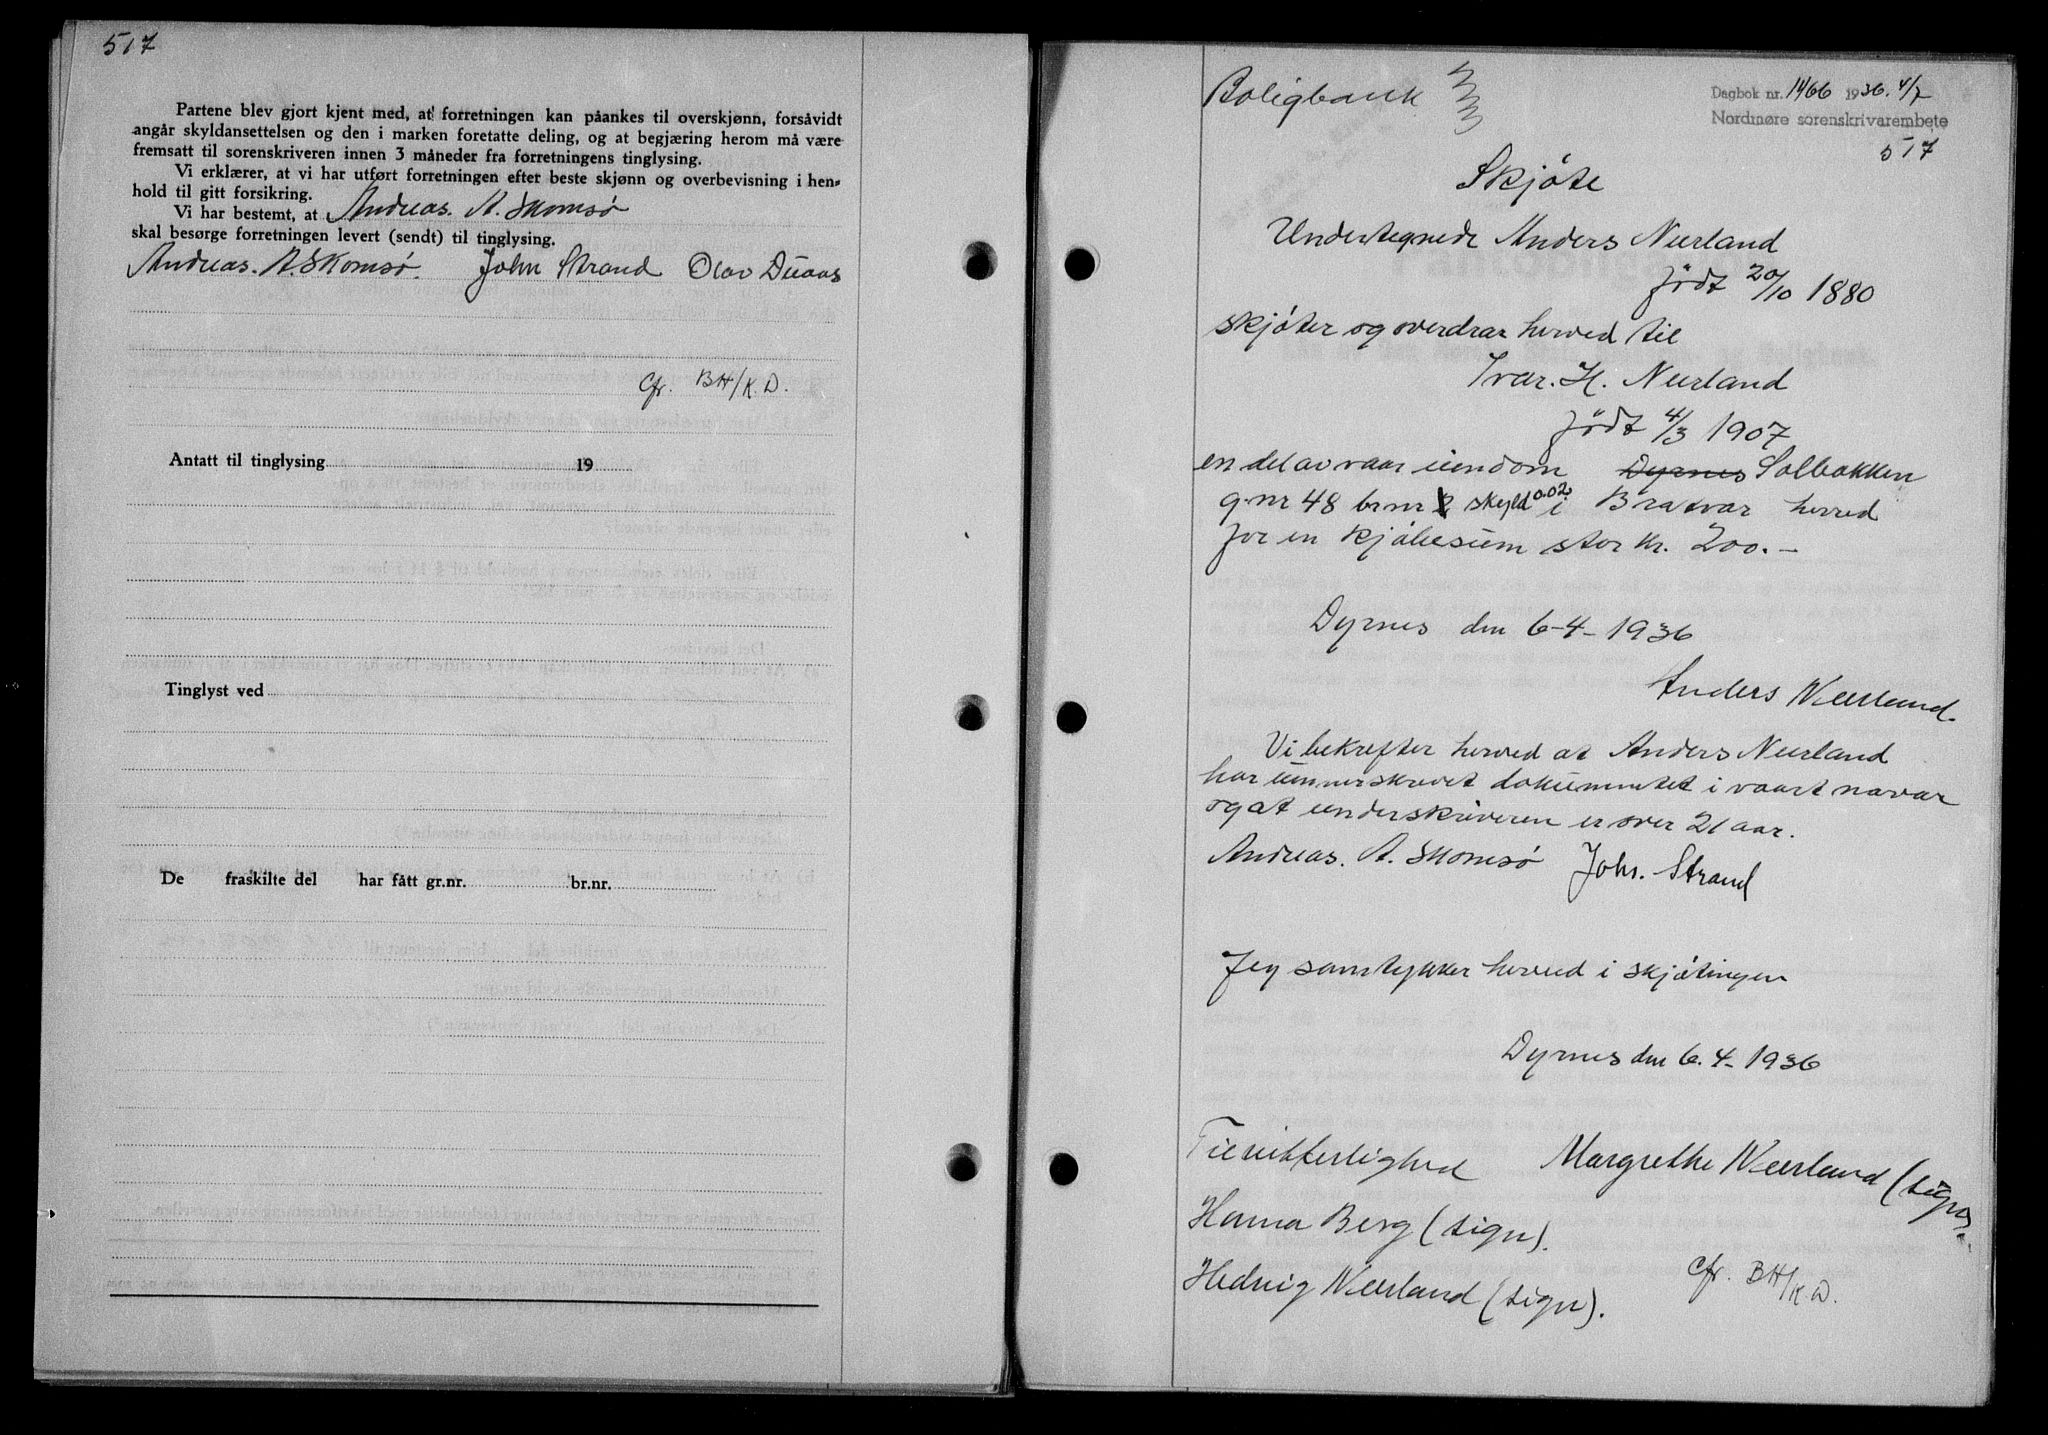 517
Partene blev gjort kjent med, at forretningen kan påankes til overskjønn, forsåvidt
angår skyldansettelsen og den i marken foretatte deling, og at begjæring herom må være
fremsatt til sorenskriveren innen 3 måneder fra forretningens tinglysing.
Vi erklærer, at vi har utført forretningen efter beste skjønn og overbevisning i hen-
hold til gitt forsikring.
Vi har bestemt, at Andreas. A. Skomsø
skal besørge forretningen levert (sendt) til tinglysing.
Andreas. A. Skomsø. John Strand Olav
Cfr. BH/K.D.
Antatt til tinglysing 19
Tinglyst ved
De fraskilte del har fått gr.nr. br.nr.
Boligbank
Dagbok nr. 1466 1936. 4/7
Nordmøre sorenskrivarembete
517
Skjøte
Undertegnede Anders Neerland
født 20/10 1880
skjøter og overdrar herved til
Ivar. H. Neerland
født 4/3 1907
en del av vaar eiendom Dyrnes Solbakken
g.nr 48 br.nr skyld 0.02 i Brattvær herred
for en kjøbesum stor kr. 200.-
Dyrnes den 6-4-1936
Anders Neerland.
Vi bekrefter herved at Anders Neerland
har unnerskrevet dokumentet i vaart nævær
og at underskriveren er over 21 aar.
Andreas. A. Skomsø Johs. Strand
Jeg samtykker herved i skjøtingen
Dyrnes den 6.4-1936
Til vitterlighed Margrethe Neerland (sign).
Hanna Berg (sign).
Hedvig Neerland (sign).
Cfr. BH/K.D.